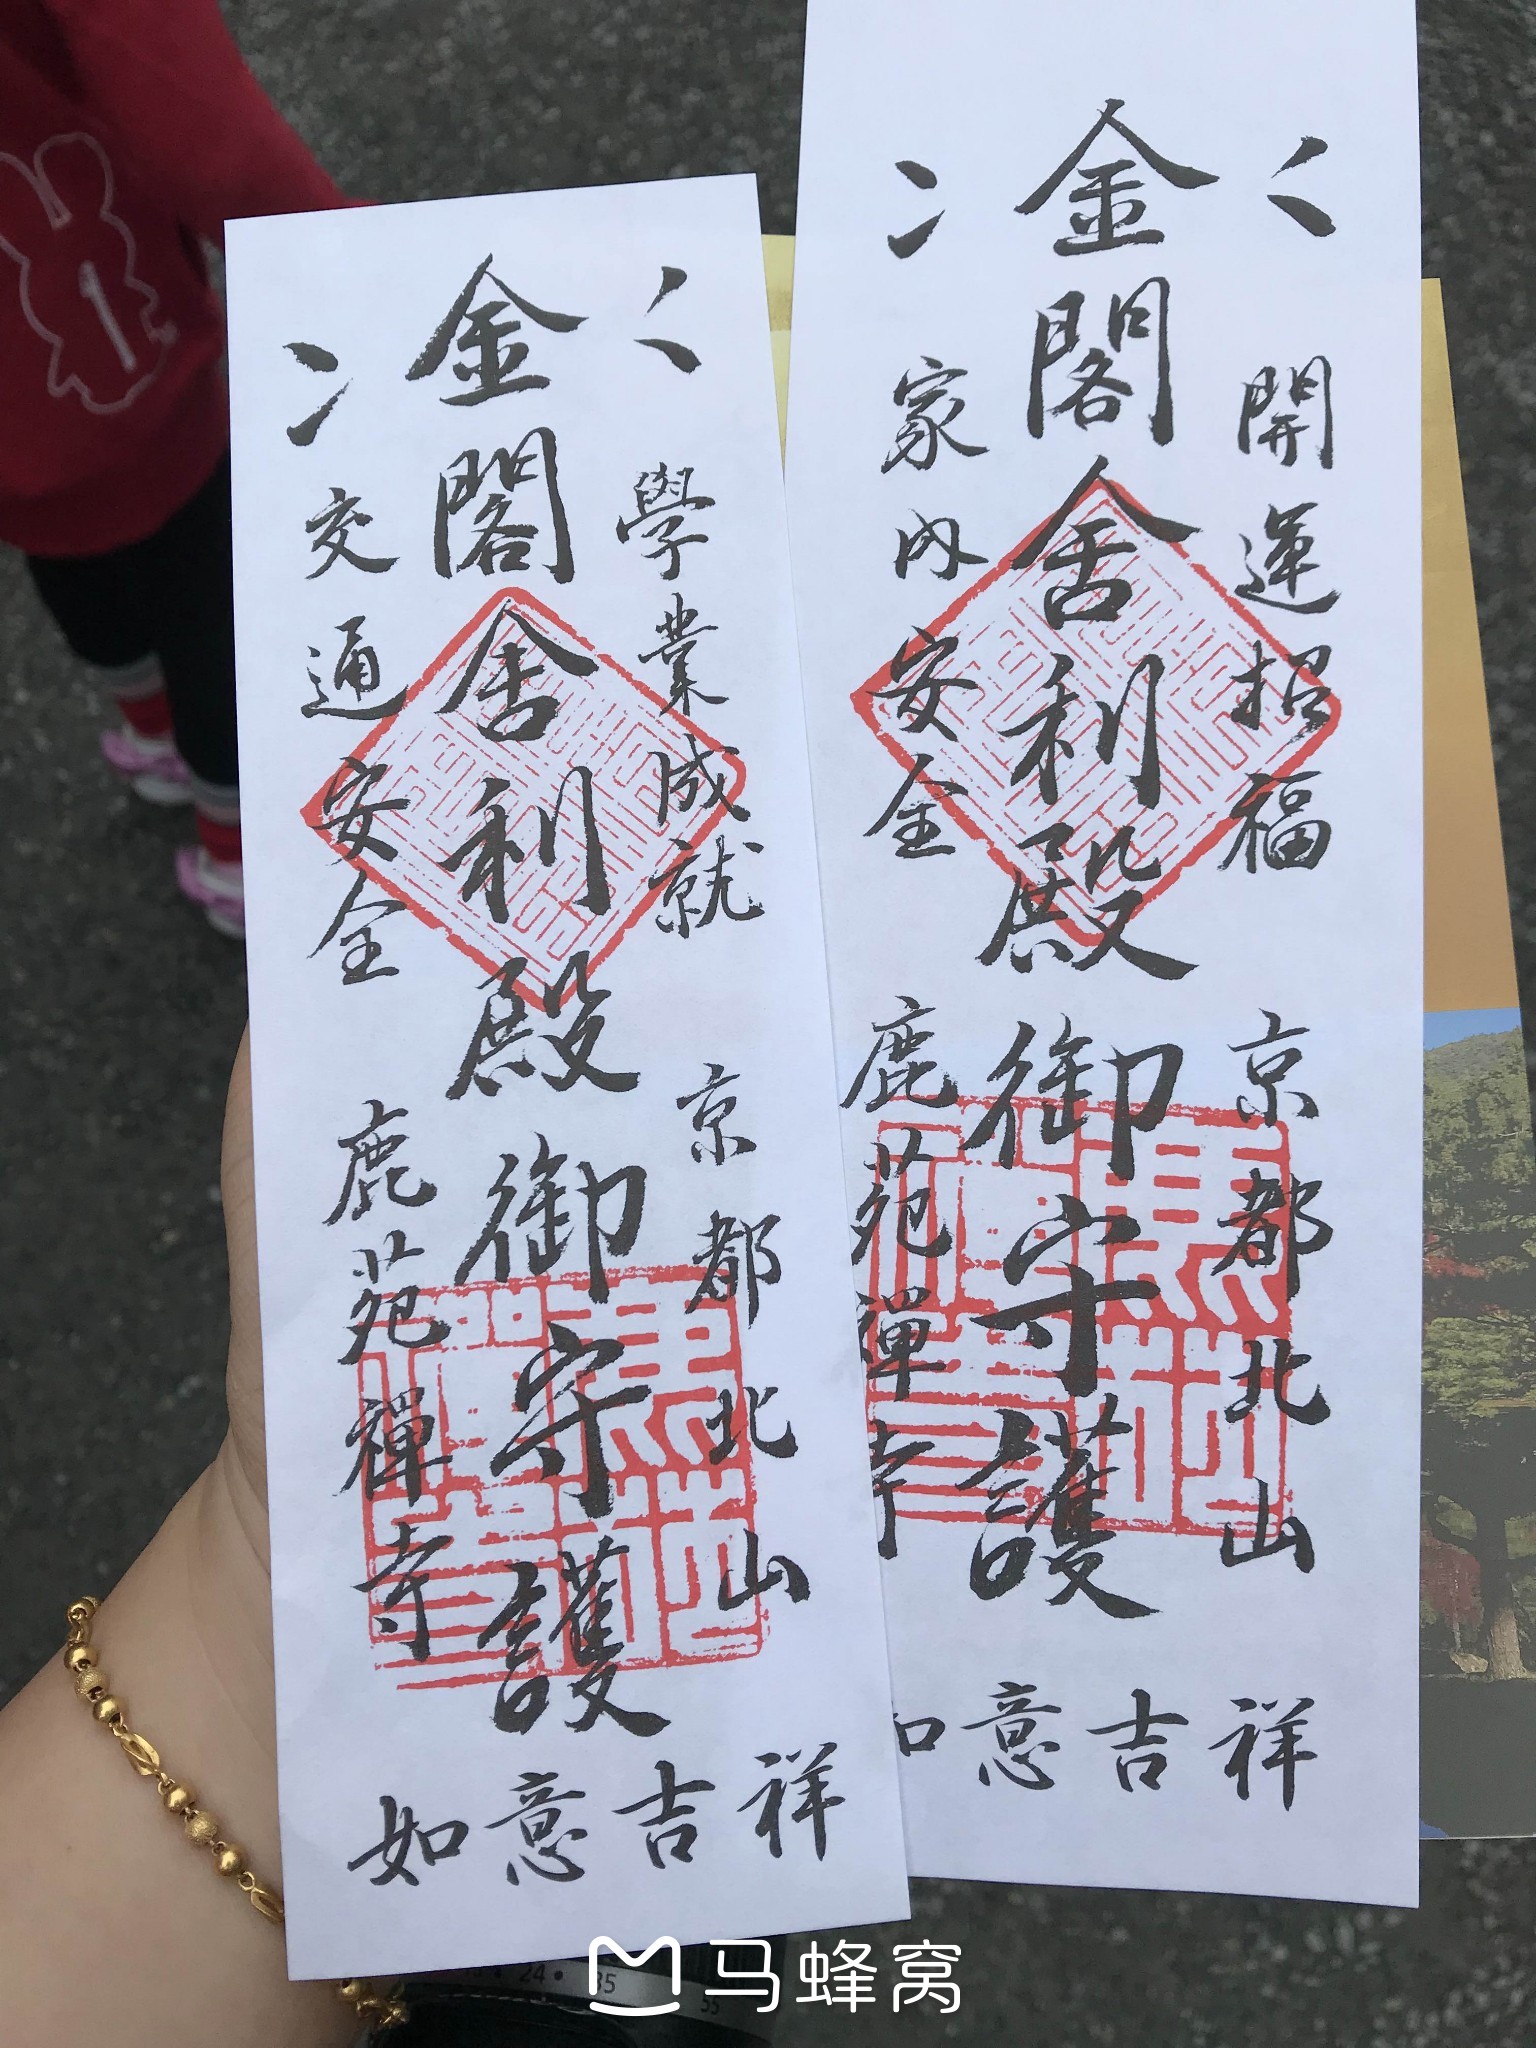 金閣舍利殿御守護
學業成就
交通安全
京都北山
鹿苑禅寺
如意吉祥
金閣舍利殿御守護
開運招福
家内安全
京都北山
鹿苑禅寺
如意吉祥
24 • 35
55
马蜂窝